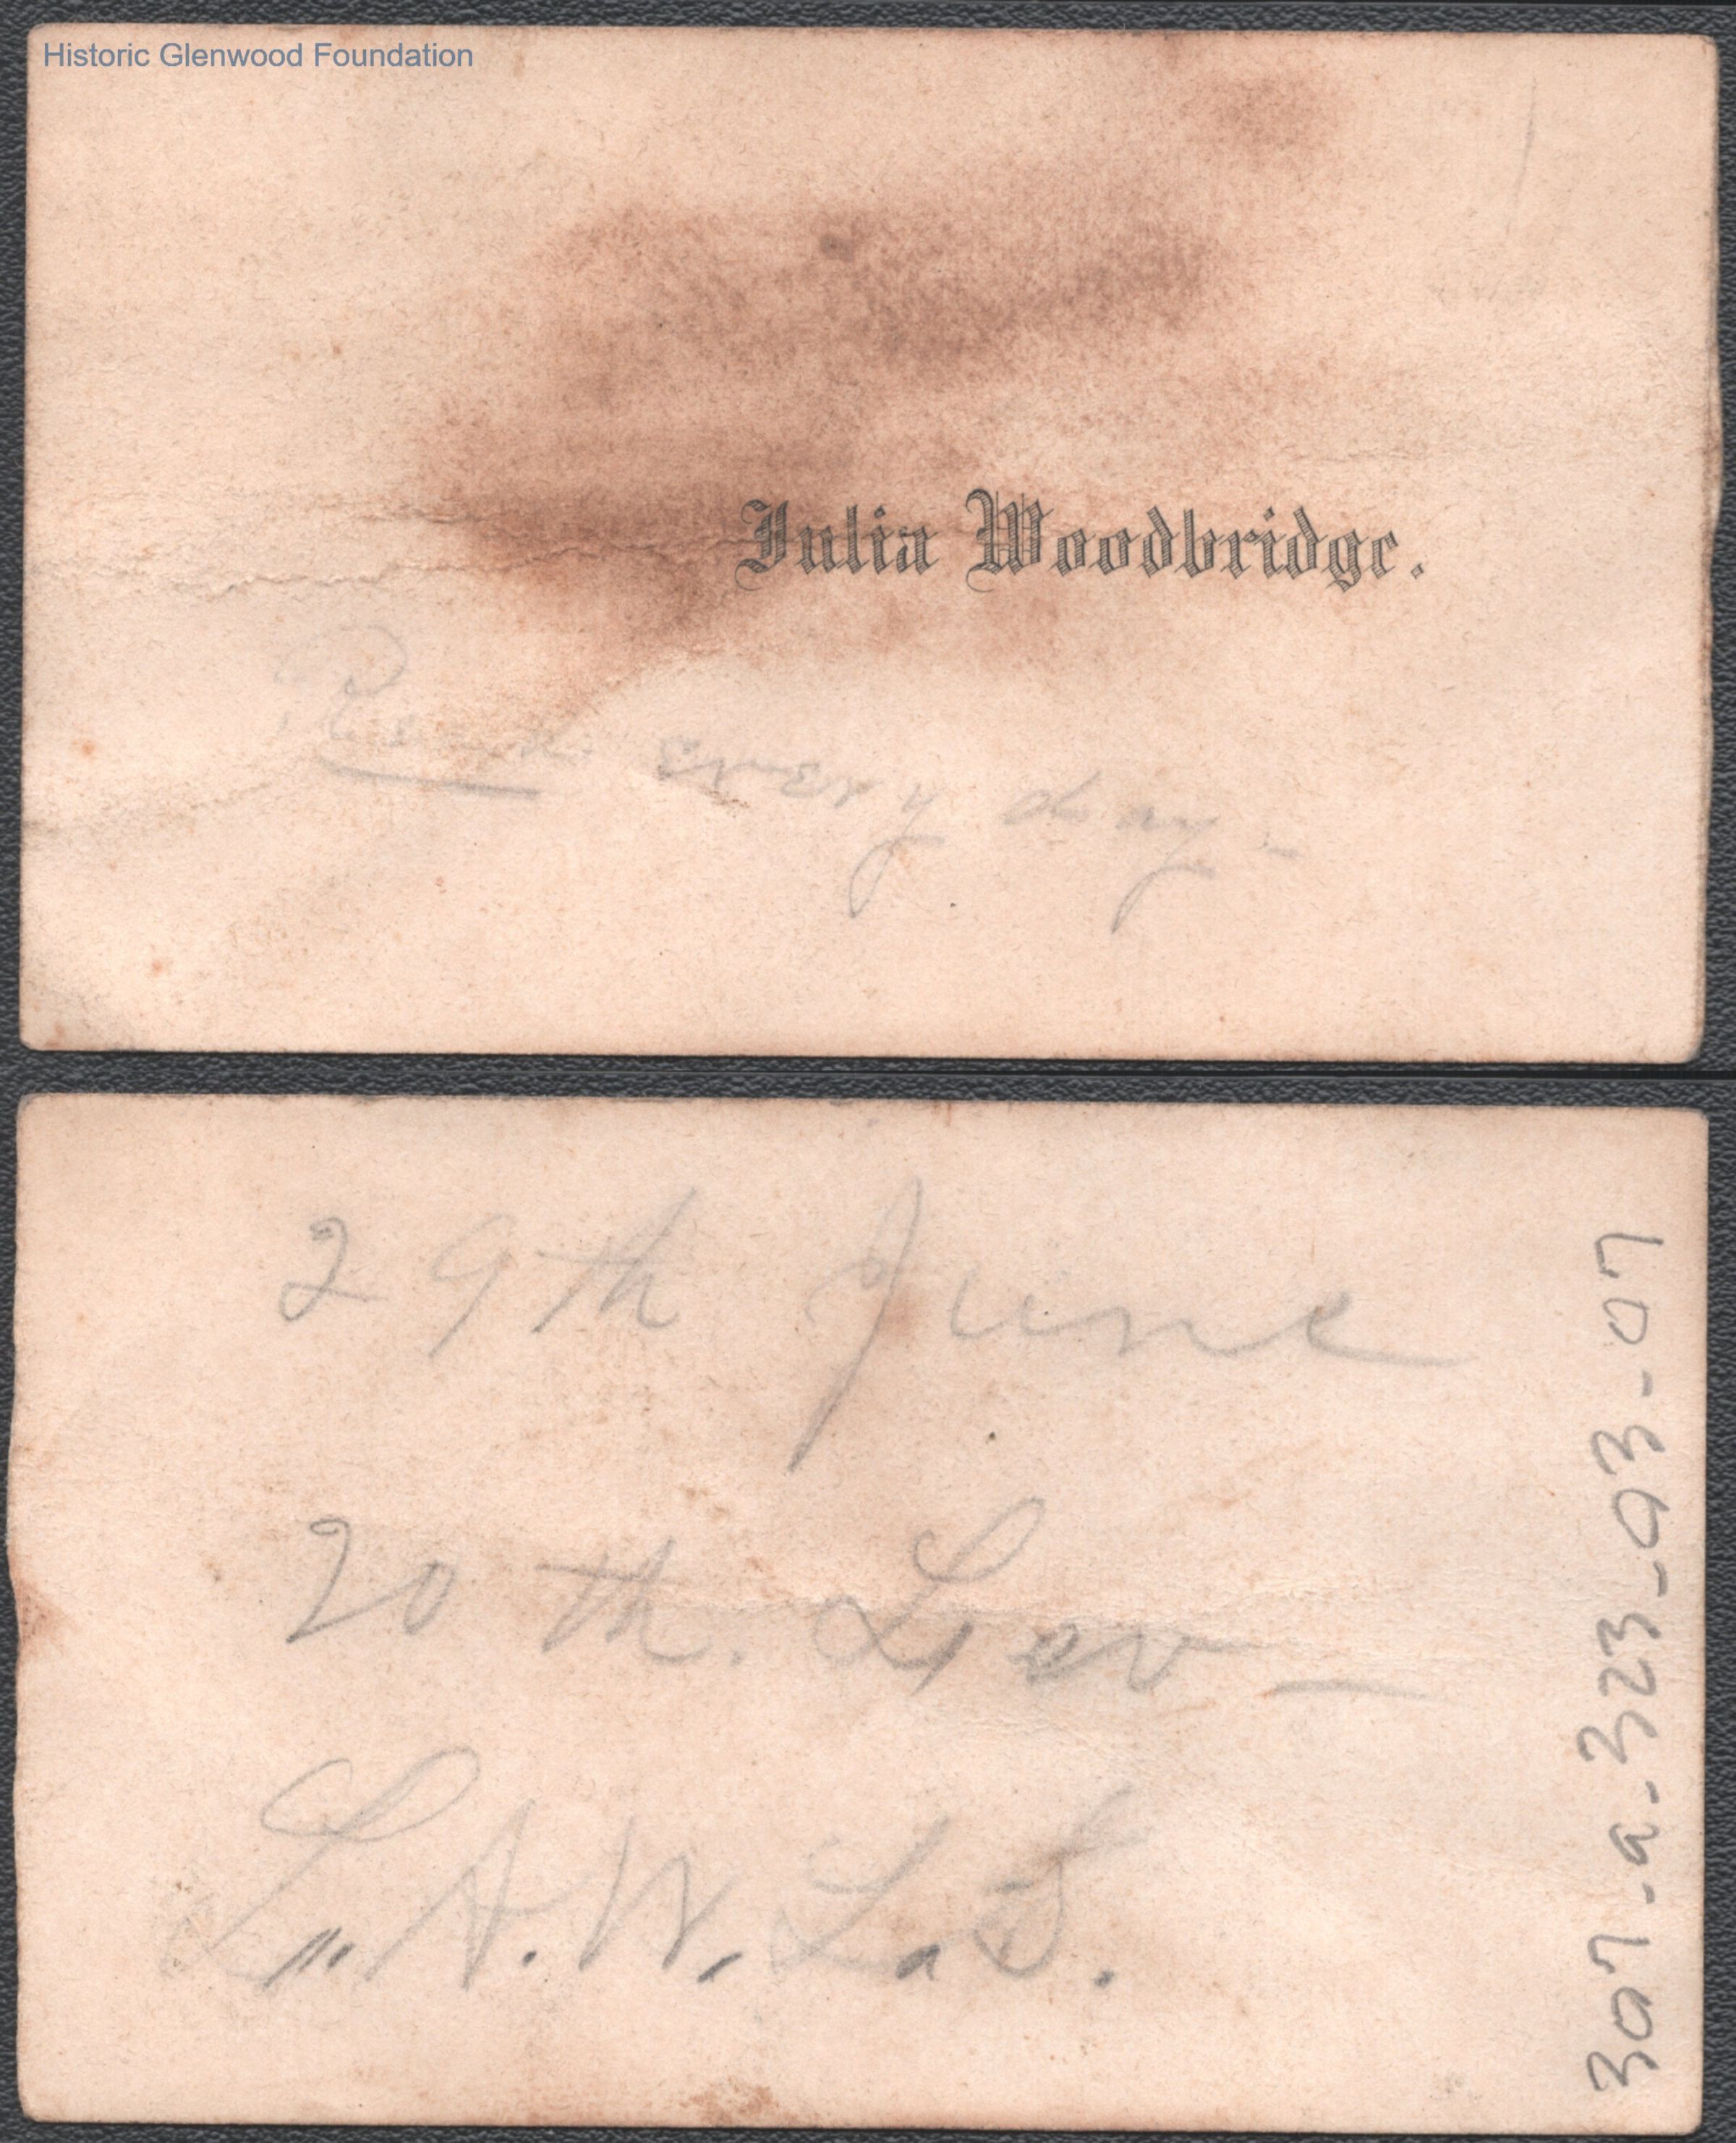 Historic Glenwood Foundation
Julia Woodbridge.
Read every day -
29th June
20th. Lev -
L. A. W. L. S.
307-a-323-03-07